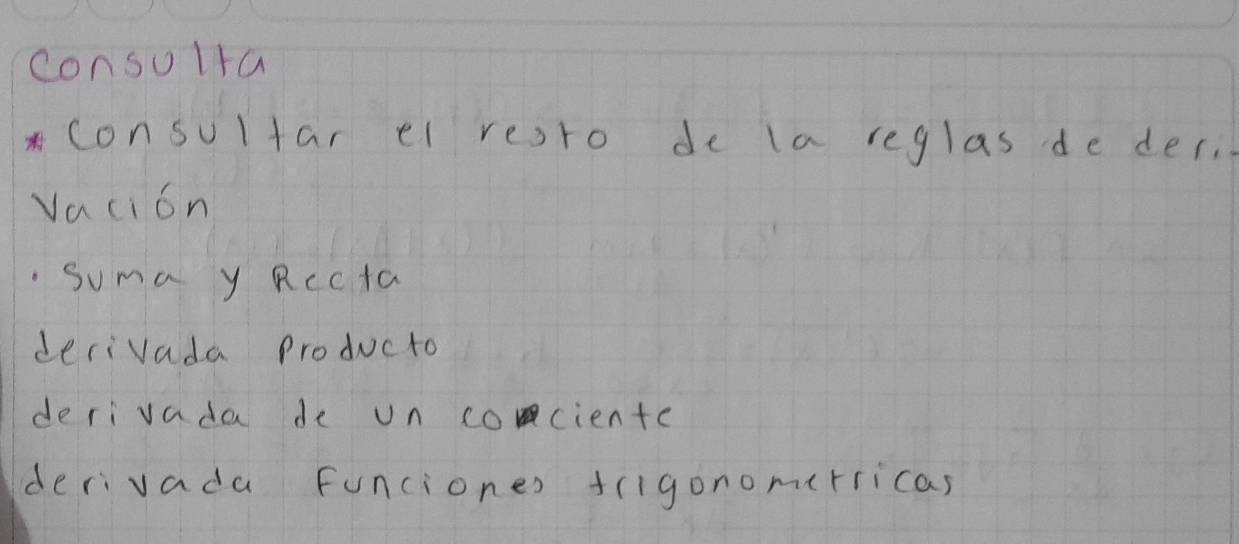 consulta
* consultar el resto de la reglas de deri-
vación
· suma y Recta
derivada producto
derivada de un cociente
derivada Funciones trigonometricas